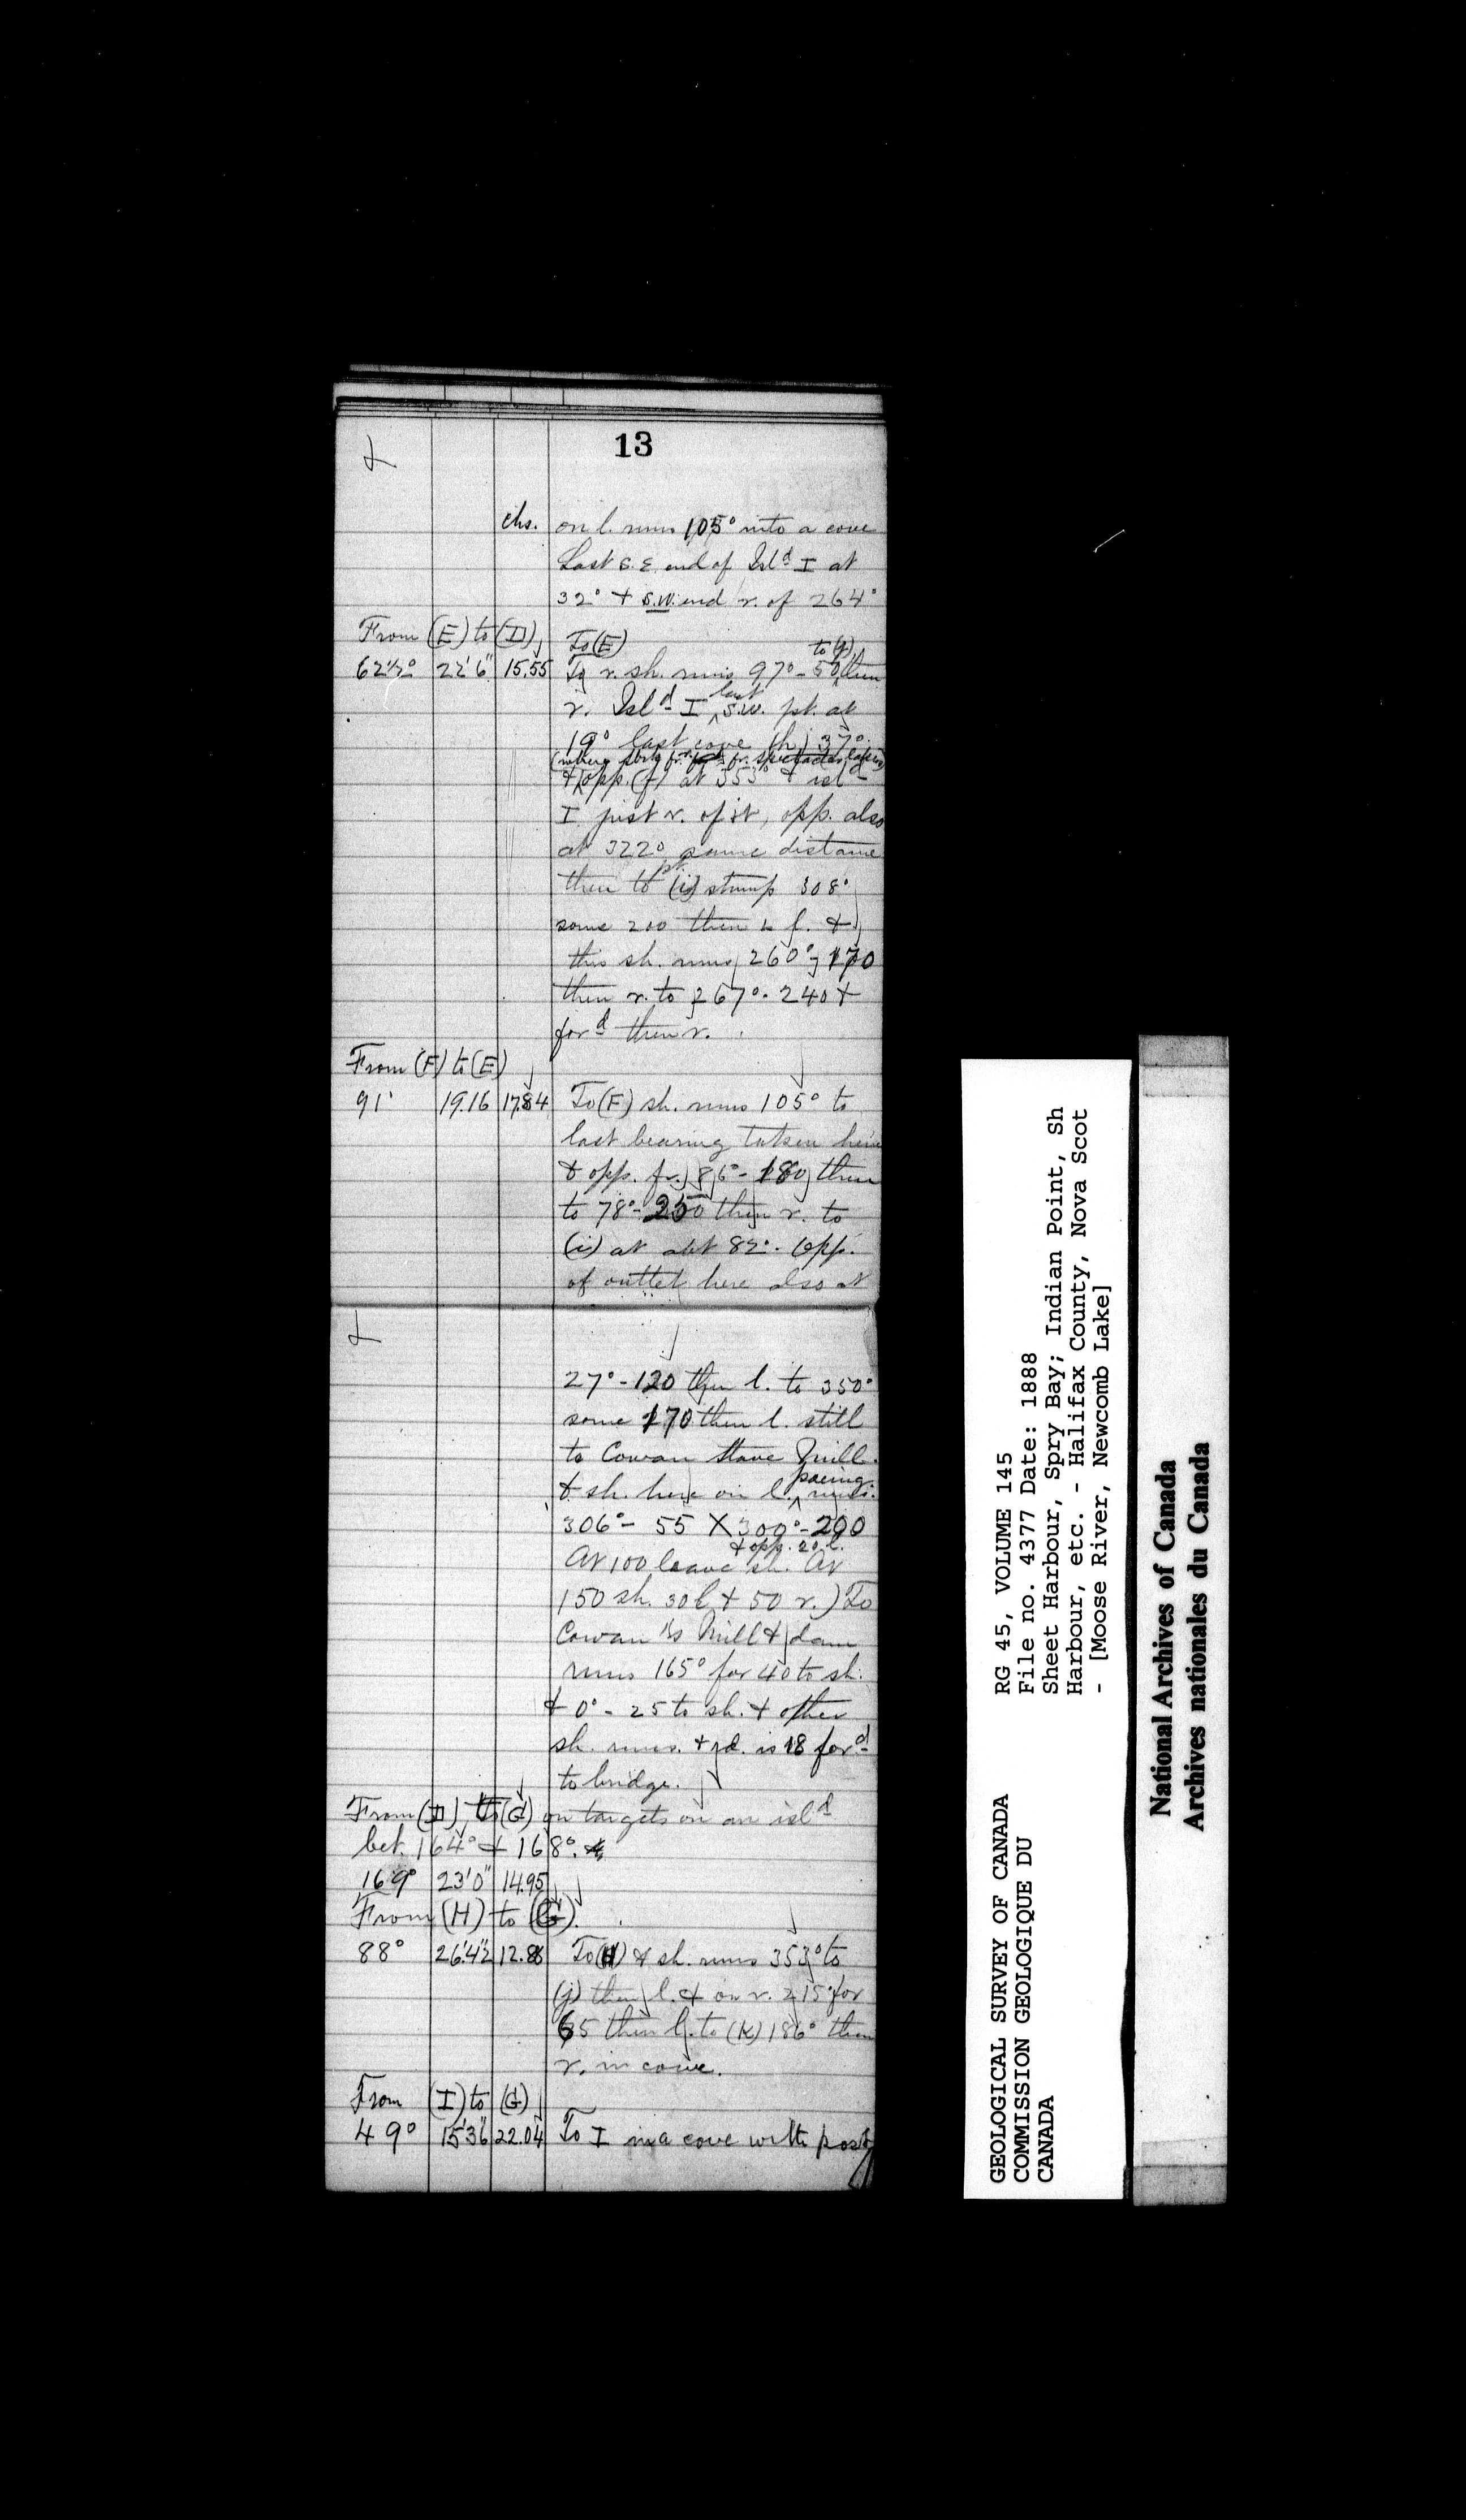 13
chs. on l. runs 105° into a cove
Last S.E. end of Isld I at
32° + S.W. end r. of 264°
From (E) to (D)
To (E)
to (g)
62½° 22'6" 15.55 To r. sh. runs 97°-50, then
r. Isld I last S.W. pt. at
19° last cove (h) 37°.
+ opp. (f) at 353° + isld
I just r. of it, opp. also
at 322° same distance
then to pt. (i) stump 308°
some 200 then to l. +
this sh. runs 260°, 170
then r. to 267°. 240 +
ford then r.
From (F) to (E)
91° 19.16 17.84 To (F) sh. runs 105° to
last bearing taken here
+ opp. fr. 86°-180, then
to 78°-250 then r. to
(i) at abt 82°. Opp.
of outlet here also at
27°-120 then l. to 350°
some 170 then l. still
to Cowan Stave Mill.
+ sh. here on l. pacing runs.
306°- 55 X 300°-200
+ opp. 20 l.
At 100 leave sh. At
150 sh. 30 l + 50 r.) To
Cowan's Mill + dam
runs 165° for 40 to sh.
+ 0° - 25 to sh. + other
sh. runs. + rd. is 18 ford
to bridge.
From (D) to (G) on targets on an isld
bet. 164° + 168°.
169° 23'0" 14.95
From (H) to (G).
88° 26'42 12.88 To (H) + sh. runs 353° to
(j) then l. + on r. 215° for
65 then l. to (k) 186° then
r. in cove.
From (I) to (G)
49° 15'36" 22.04 To I in a cove with post
GEOLOGICAL SURVEY OF CANADA
COMMISSION GEOLOGIQUE DU
CANADA
RG 45, VOLUME 145
File no. 4377 Date: 1888
Sheet Harbour, Spry Bay; Indian Point, Sh
Harbour, etc. - Halifax County, Nova Scot
- [Moose River, Newcomb Lake]
National Archives of Canada
Archives nationales du Canada